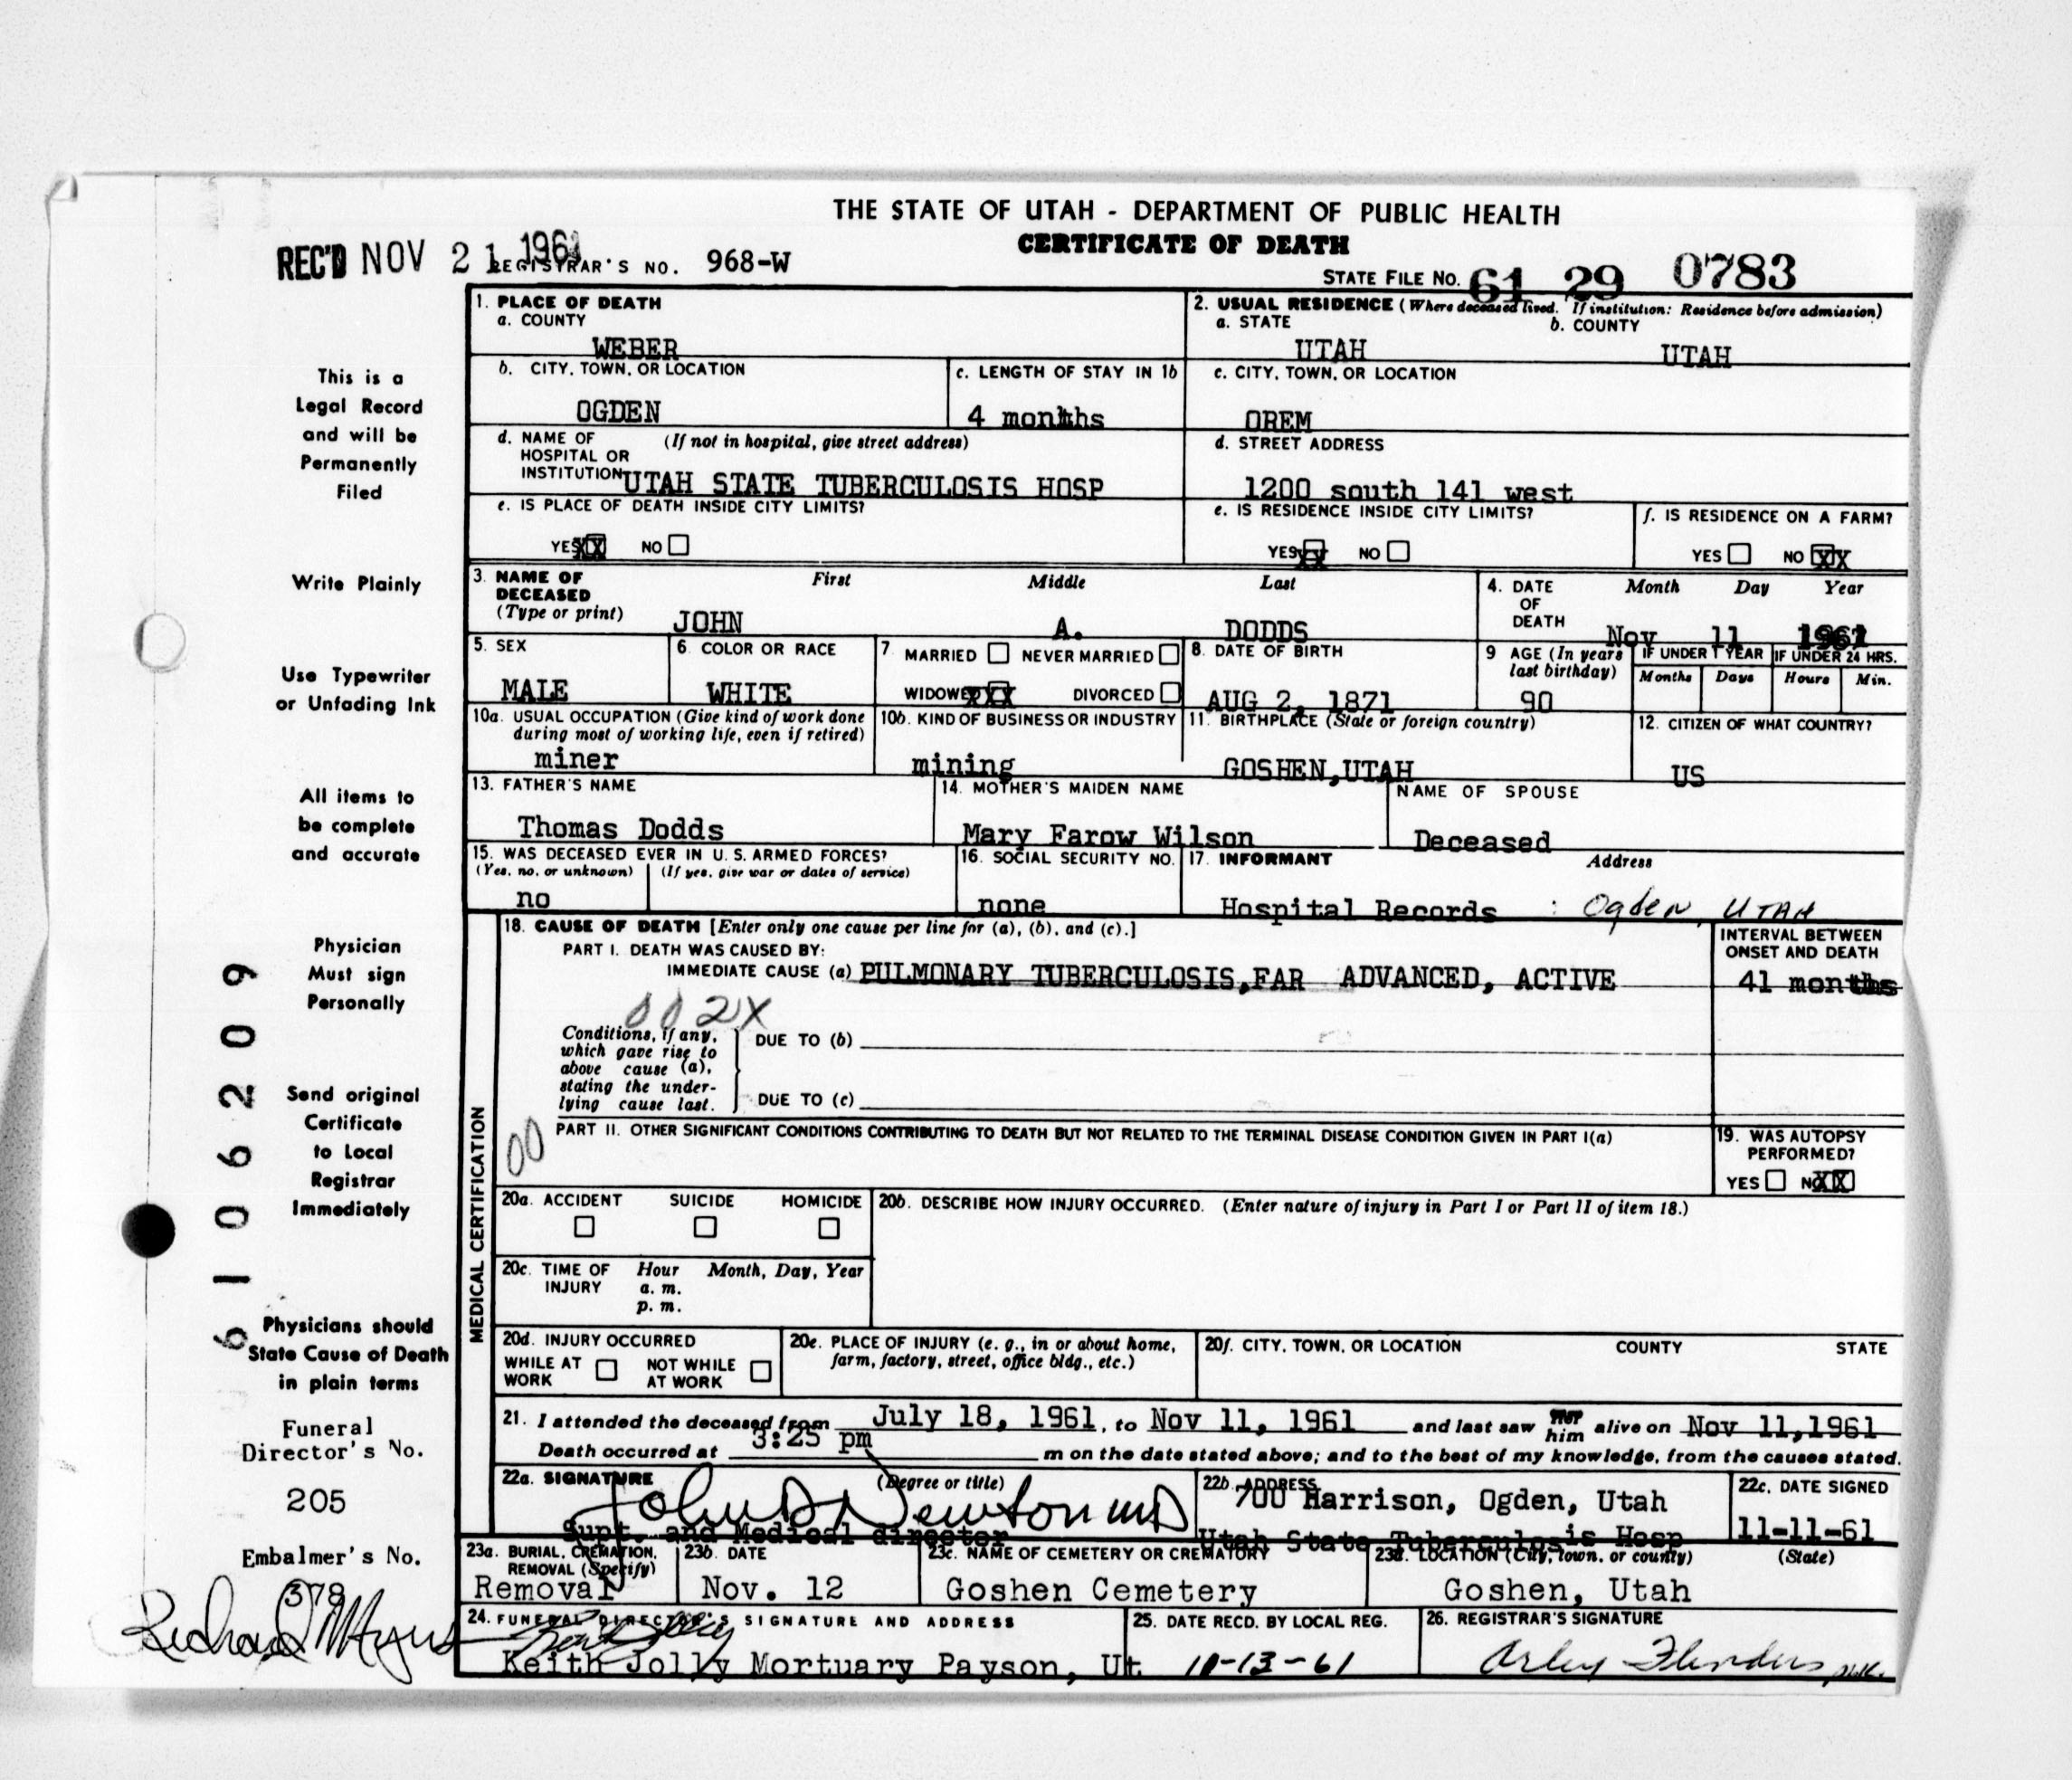 THE STATE OF UTAH - DEPARTMENT OF PUBLIC HEALTH
CERTIFICATE OF DEATH
REC'D NOV 21 1961
REGISTRAR'S NO. 968-W
STATE FILE NO. 61 29 0783
This is a
Legal Record
and will be
Permanently
Filed
Write Plainly
Use Typewriter
or Unfading Ink
All items to
be complete
and accurate
Physician
Must sign
Personally
Send original
Certificate
to Local
Registrar
Immediately
Physicians should
State Cause of Death
in plain terms
Funeral
Director's No.
205
Embalmer's No.
378
Richard Myers
6106209
1. PLACE OF DEATH
a. COUNTY
WEBER
2. USUAL RESIDENCE (Where deceased lived. If institution: Residence before admission)
a. STATE b. COUNTY
UTAH UTAH
b. CITY, TOWN, OR LOCATION
OGDEN
c. LENGTH OF STAY IN 1b
4 months
c. CITY, TOWN, OR LOCATION
OREM
d. NAME OF (If not in hospital, give street address)
HOSPITAL OR
INSTITUTION UTAH STATE TUBERCULOSIS HOSP
d. STREET ADDRESS
1200 south 141 west
e. IS PLACE OF DEATH INSIDE CITY LIMITS?
YES XX NO
e. IS RESIDENCE INSIDE CITY LIMITS?
YES XX NO
f. IS RESIDENCE ON A FARM?
YES NO XX
3. NAME OF First Middle Last
DECEASED
(Type or print) JOHN A. DODDS
4. DATE Month Day Year
OF
DEATH Nov 11 1961
5. SEX
MALE
6. COLOR OR RACE
WHITE
7. MARRIED NEVER MARRIED
WIDOWED XXX DIVORCED
8. DATE OF BIRTH
AUG 2, 1871
9 AGE (In years
last birthday)
90
IF UNDER 1 YEAR IF UNDER 24 HRS.
Months Days Hours Min.
10a. USUAL OCCUPATION (Give kind of work done
during most of working life, even if retired)
miner
10b. KIND OF BUSINESS OR INDUSTRY
mining
11. BIRTHPLACE (State or foreign country)
GOSHEN, UTAH
12. CITIZEN OF WHAT COUNTRY?
US
13. FATHER'S NAME
Thomas Dodds
14. MOTHER'S MAIDEN NAME
Mary Farow Wilson
NAME OF SPOUSE
Deceased
15. WAS DECEASED EVER IN U. S. ARMED FORCES?
(Yes, no, or unknown) (If yes, give war or dates of service)
no
16. SOCIAL SECURITY NO.
none
17. INFORMANT Address
Hospital Records : Ogden, UTAH
MEDICAL CERTIFICATION
18. CAUSE OF DEATH [Enter only one cause per line for (a), (b), and (c).]
PART I. DEATH WAS CAUSED BY:
IMMEDIATE CAUSE (a) PULMONARY TUBERCULOSIS, FAR ADVANCED, ACTIVE
INTERVAL BETWEEN
ONSET AND DEATH
41 months
002X
Conditions, if any,
which gave rise to
above cause (a),
stating the under-
lying cause last.
DUE TO (b)
DUE TO (c)
00
PART II. OTHER SIGNIFICANT CONDITIONS CONTRIBUTING TO DEATH BUT NOT RELATED TO THE TERMINAL DISEASE CONDITION GIVEN IN PART I(a)
19. WAS AUTOPSY
PERFORMED?
YES NO XX
20a. ACCIDENT SUICIDE HOMICIDE
20b. DESCRIBE HOW INJURY OCCURRED. (Enter nature of injury in Part I or Part II of item 18.)
20c. TIME OF Hour Month, Day, Year
INJURY a. m.
p. m.
20d. INJURY OCCURRED
WHILE AT NOT WHILE
WORK AT WORK
20e. PLACE OF INJURY (e. g., in or about home,
farm, factory, street, office bldg., etc.)
20f. CITY, TOWN, OR LOCATION COUNTY STATE
21. I attended the deceased from July 18, 1961, to Nov 11, 1961 and last saw her him alive on Nov 11,1961
Death occurred at 3:25 pm m on the date stated above; and to the best of my knowledge, from the causes stated.
22a. SIGNATURE (Degree or title)
John D Newton MD
Supt. and Medical director
22b. ADDRESS
700 Harrison, Ogden, Utah
Utah State Tuberculosis Hosp
22c. DATE SIGNED
11-11-61
23a. BURIAL, CREMATION,
REMOVAL (Specify)
Removal
23b. DATE
Nov. 12
23c. NAME OF CEMETERY OR CREMATORY
Goshen Cemetery
23d. LOCATION (City, town, or county) (State)
Goshen, Utah
24. FUNERAL DIRECTOR'S SIGNATURE AND ADDRESS
Keith Jolly Mortuary Payson, Ut.
25. DATE RECD. BY LOCAL REG.
11-13-61
26. REGISTRAR'S SIGNATURE
Arley Flinders